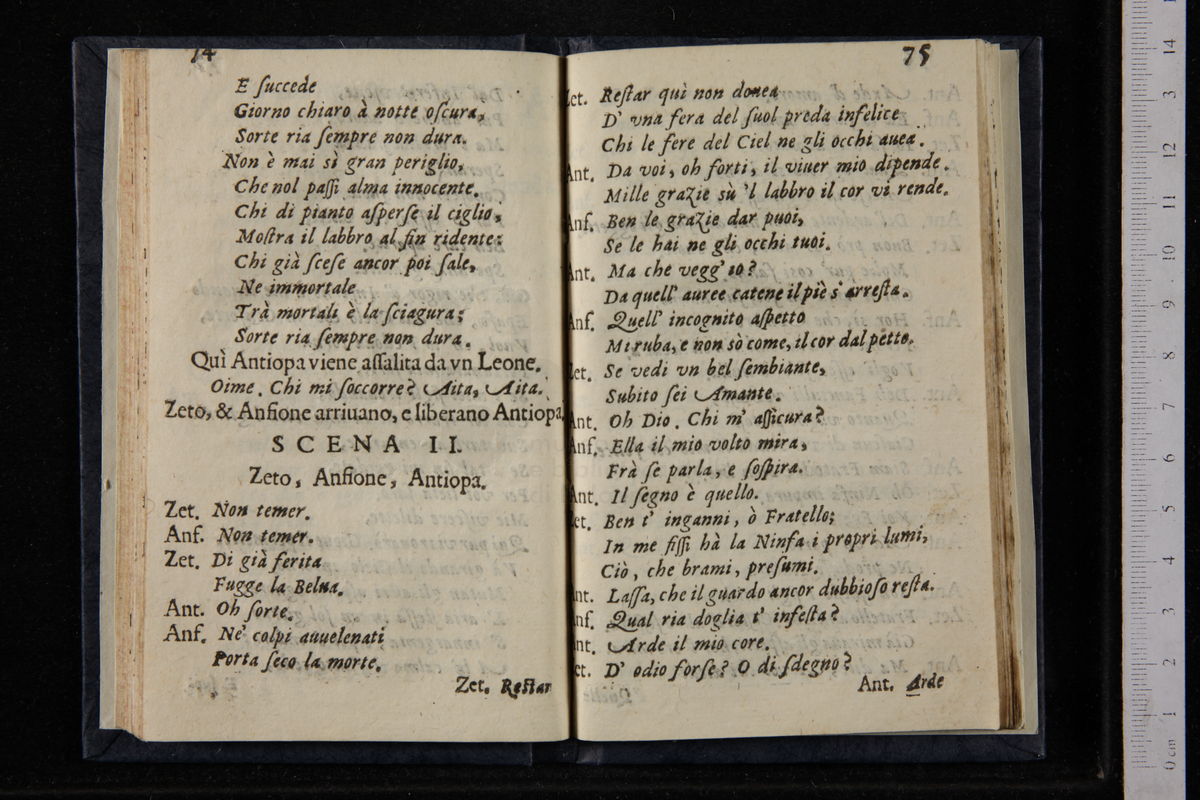 74
E ſuccede
Giorno chiaro à notte oſcura,
Sorte ria ſempre non dura.
Non è mai sì gran periglio,
Che nol paſſi alma innocente.
Chi di pianto aſperſe il ciglio,
Moſtra il labbro al fin ridente:
Chi già ſceſe ancor poi ſale,
Ne immortale
Trà mortali è la ſciagura;
Sorte ria ſempre non dura.
Quì Antiopa viene aſſalita da vn Leone.
Oime. Chi mi ſoccorre? Aita, Aita.
Zeto, & Anfione arriuano, e liberano Antiopa.
SCENA II.
Zeto, Anfione, Antiopa.
Zet. Non temer.
Anf. Non temer.
Zet. Di già ferita
Fugge la Belua.
Ant. Oh ſorte.
Anf. Ne' colpi auuelenati
Porta ſeco la morte.
Zet. Reſtar
75
Zet. Reſtar quì non douea
D' vna fera del ſuol preda infelice
Chi le fere del Ciel ne gli occhi auea.
Ant. Da voi, oh forti, il viuer mio dipende.
Mille grazie sù 'l labbro il cor vi rende.
Anf. Ben le grazie dar puoi,
Se le hai ne gli occhi tuoi.
Ant. Ma che vegg' io?
Da quell' auree catene il piè s' arreſta.
Anf. Quell' incognito aſpetto
Mi ruba, e non sò come, il cor dal petto.
Zet. Se vedi vn bel ſembiante,
Subito ſei Amante.
Ant. Oh Dio. Chi m' aſſicura?
Anf. Ella il mio volto mira,
Frà ſe parla, e ſoſpira.
Ant. Il ſegno è quello.
Zet. Ben t' inganni, ò Fratello;
In me fiſſi hà la Ninfa i propri lumi,
Ciò, che brami, preſumi.
Ant. Laſſa, che il guardo ancor dubbioſo reſta.
Anf. Qual ria doglia t' infeſta?
Ant. Arde il mio core.
Zet. D' odio forſe? O di ſdegno?
Ant. Arde